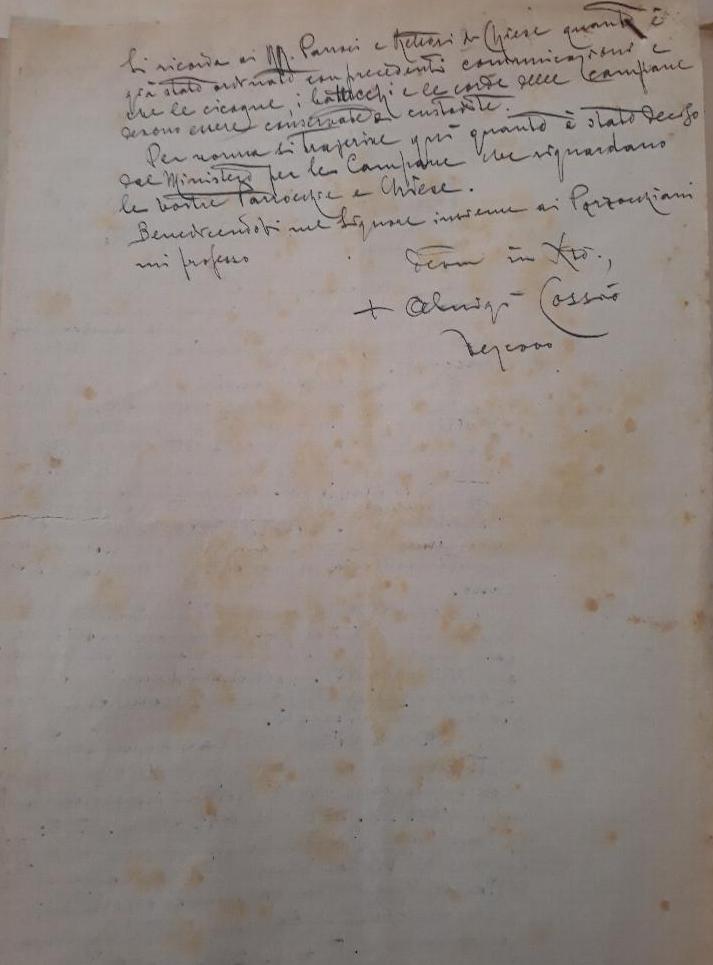 Si ricorda ai M. Parroci e Rettori di Chiese quanto è
già stato ordinato con precedenti comunicazioni e
che le cicogne, i battacchi e le corde delle Campane
devono essere conservate e custodite.
Per norma si trascrive qui quanto è stato deciso
dal Ministero per le Campane che riguardano
le vostre Parrocchie e Chiese.
Benedicendovi nel Signore insieme ai Parrocchiani
mi professo
in Xto.,
+ Aluigi Cossio
Vescovo